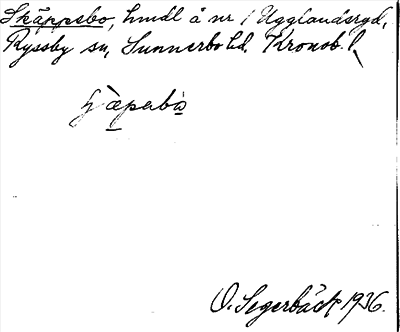 Skäppsbo, hmdl å nr 1 Ugglandsryd,
Ryssby sn, Sunnerbo hd. Kronob. l.
O. Segerbäck 1936.